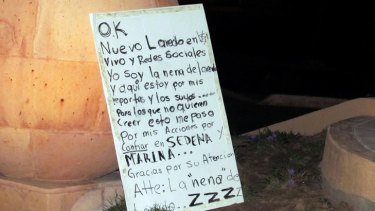 OK
Nuevo Laredo en
Vivo y Redes Sociales
Yo soy la nena de laredo
y aqui estoy por mis
reportes y los suyos...
Para los que no quieren
Creer esto me paso
Por mis Acciones por
Confiar en SEDENA y
MARINA...
"Gracias por su Atencion
Atte: La "nena" de
Laredo...ZZZZ